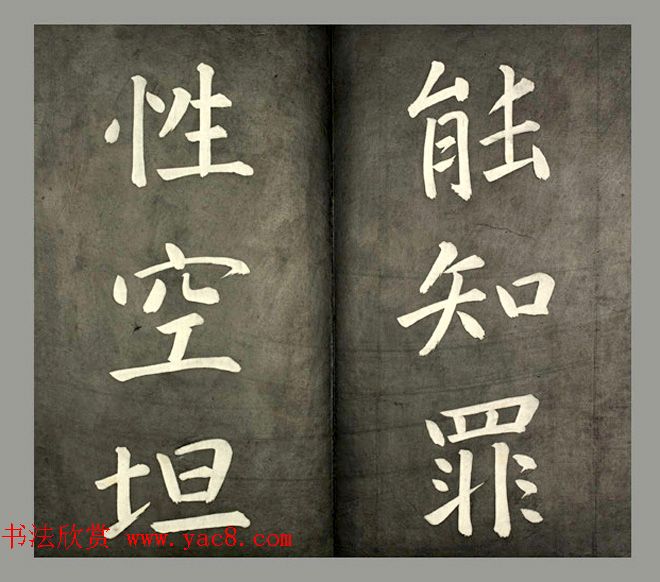 能知罪
性空坦
书法欣赏 www.yac8.com